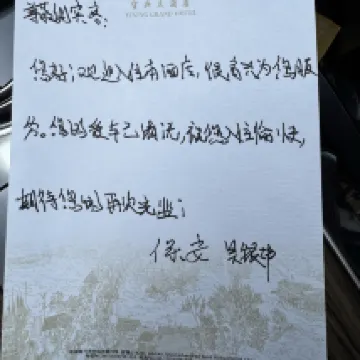 尊敬的宾客:
您好;欢迎入住本酒店,很高兴为您服
务。您的爱车已清洗,祝您入住愉快,
期待您的再次光临;
保安 吴银